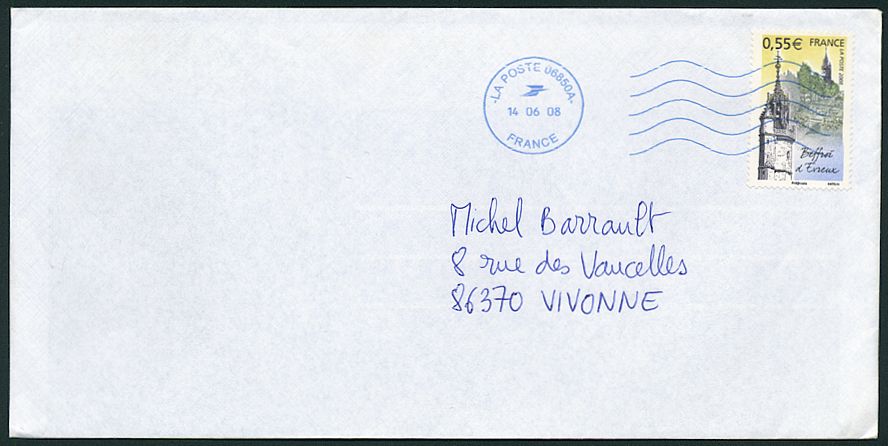 0,55€ FRANCE
LA POSTE 2008
LA POSTE 06850A
14 06 08
FRANCE
Beffroi
d'Evreux
Michel Barrault
8 rue des Vaucelles
86370 VIVONNE